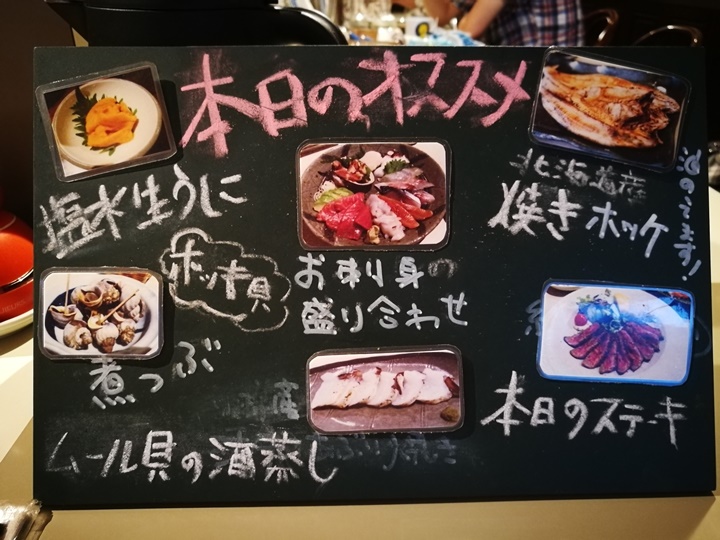 本日のオススメ
塩水生うに
北海道産
焼きホッケ
ホッキ貝
お刺身の
盛り合わせ
煮つぶ
本日のステーキ
ムール貝の酒蒸し